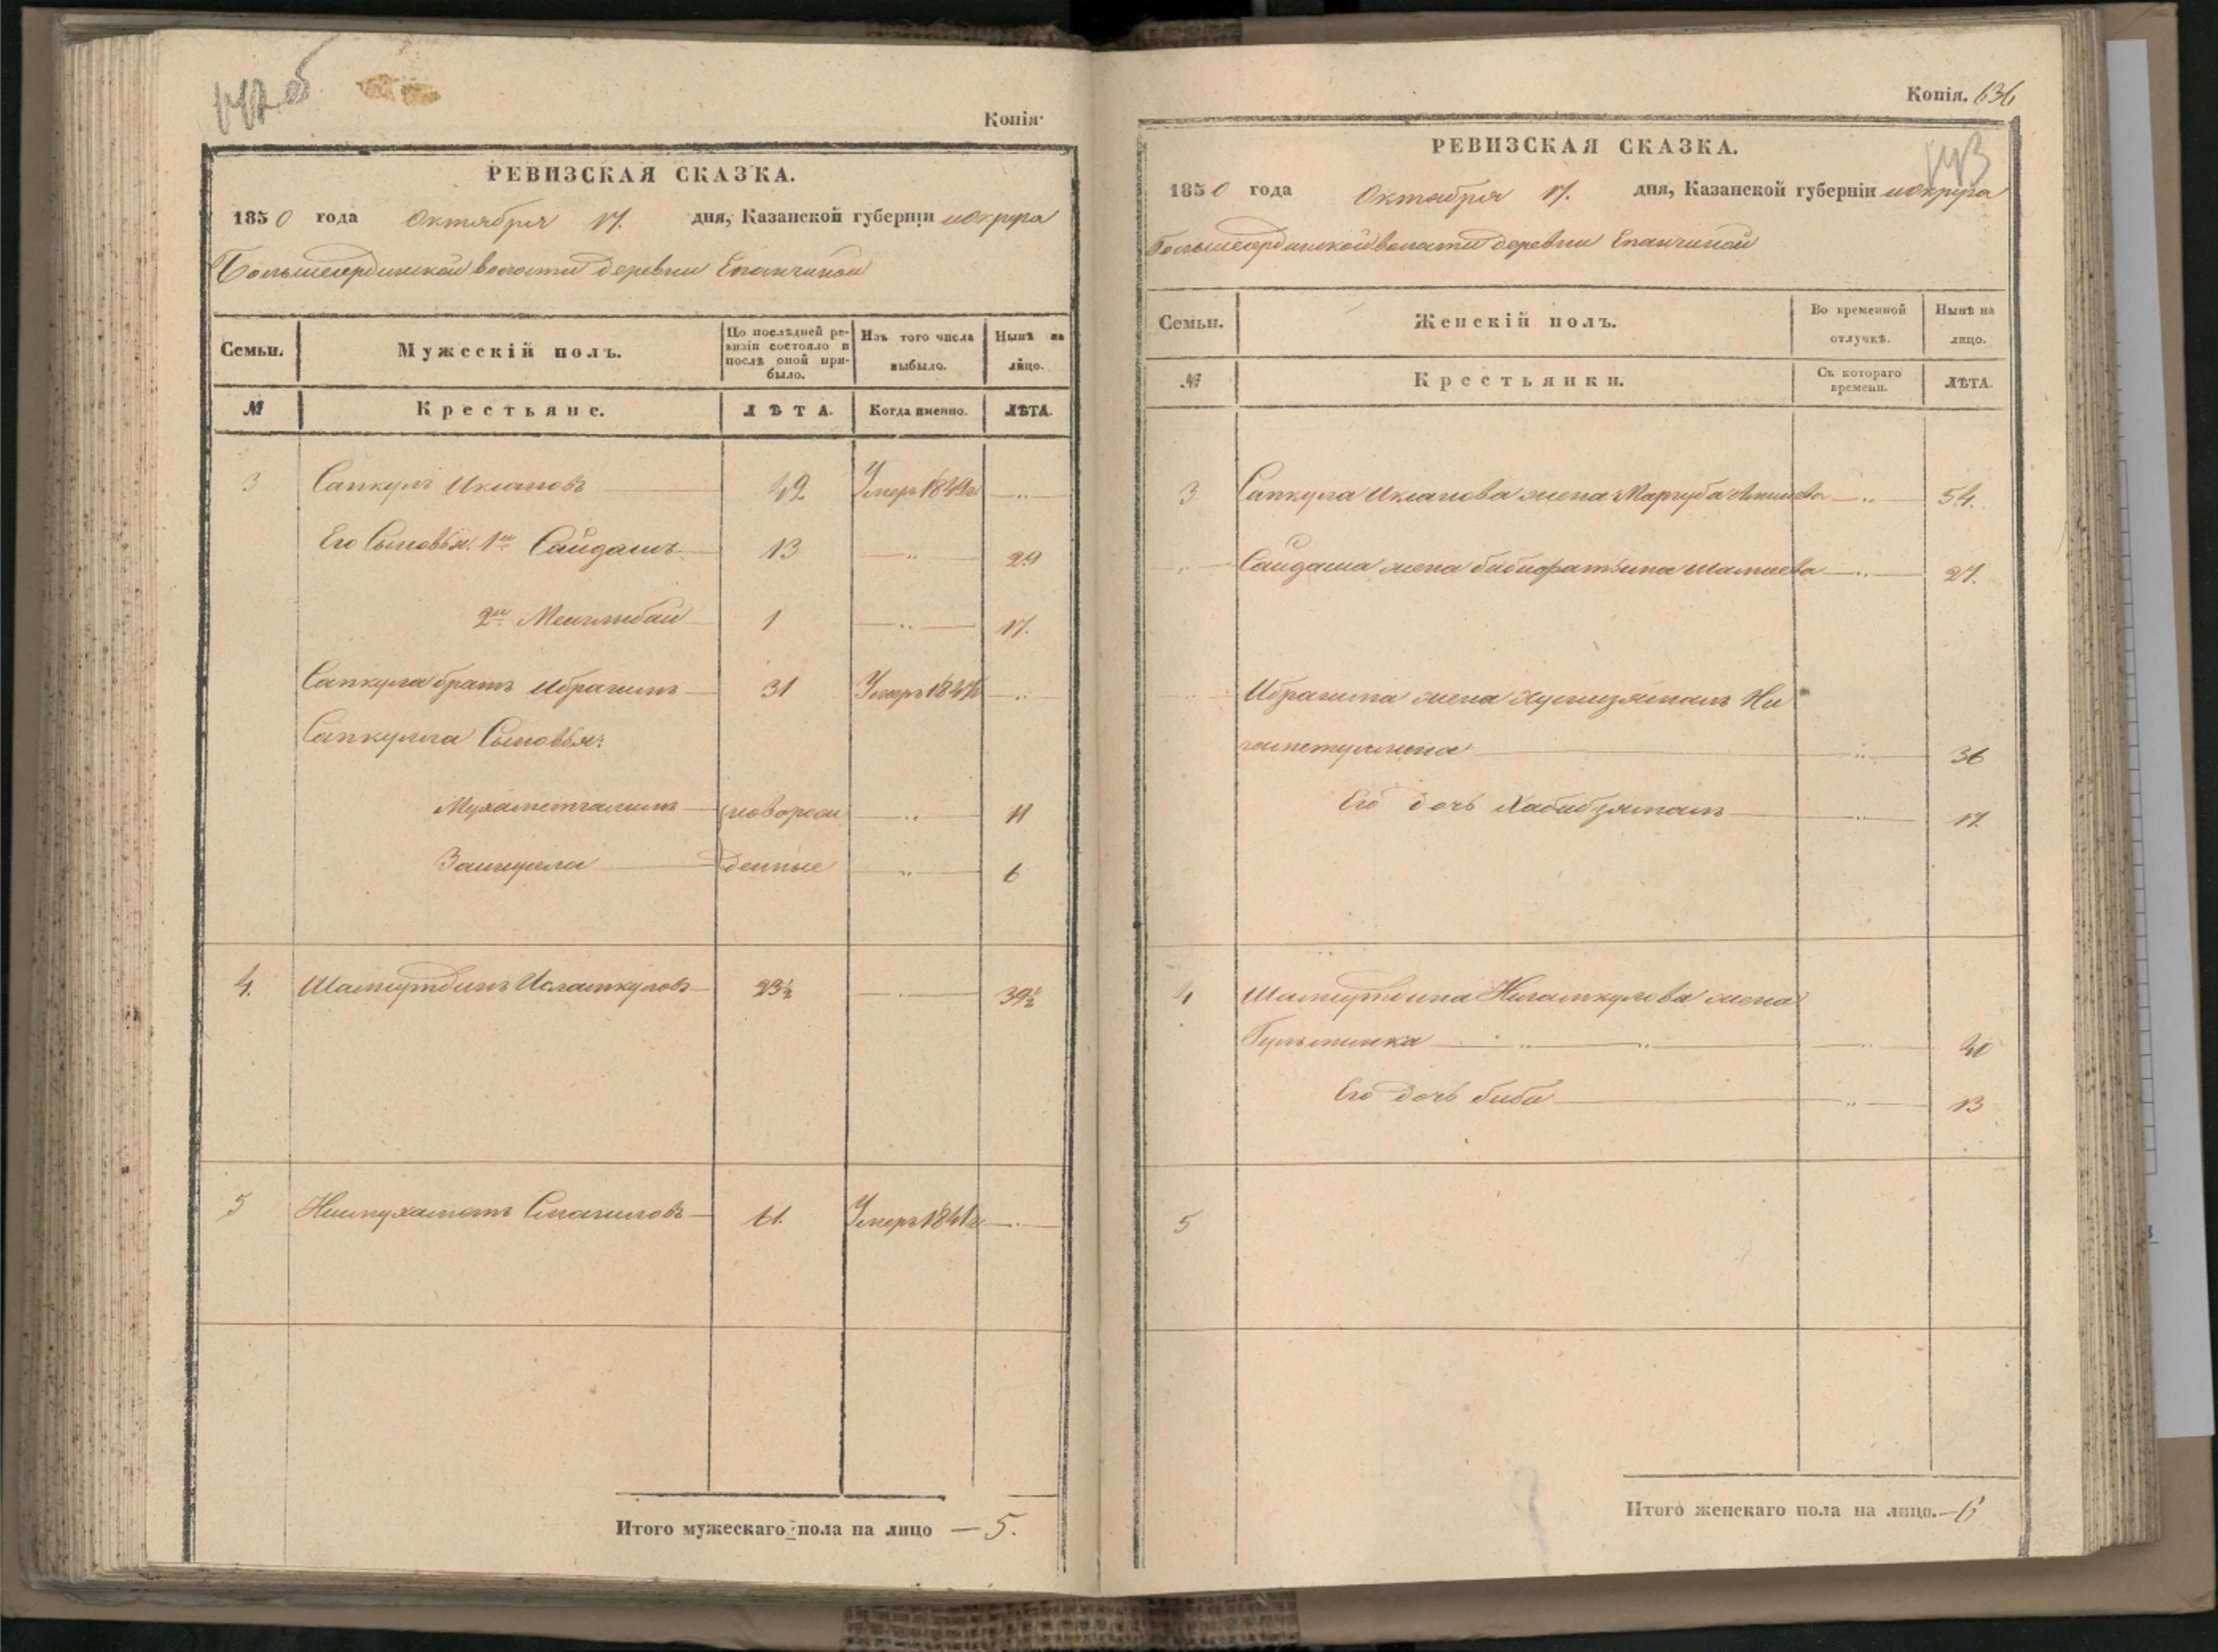 142 об
Копія.
РЕВИЗСКАЯ СКАЗКА.
1850 года Октября 17. дня, Казанской губерніи и округа
Большесердинской волости деревни Епанчиной
Семьи. Мужескій полъ. По послѣдней ревизіи состояло и послѣ оной прибыло. Изъ того числа выбыло. Нынѣ на лицо.
№ Крестьяне. ЛѢТА. Когда именно. ЛѢТА.
3 Сапкулъ Иксановъ 42 Умеръ 1849 г
Его Сыновья: 1й Сайдашъ 13 29
2й Менглибай 1 17.
Сапкула братъ Ибрагимъ 31 Умеръ 184
Сапкула Сыновья:
Мухаметгалимъ (новорож 11
денные 6
4. Шамгутдинъ 23½ 39½
5 61. Умеръ 1841 г
Итого мужескаго пола на лицо — 5.
Копія. 636
143
РЕВИЗСКАЯ СКАЗКА.
1850 года Октября 17. дня, Казанской губерніи и округа
Большесердинской волости деревни Епанчиной
Семьи. Женскій полъ. Во временной отлучкѣ. Нынѣ на лицо.
№ Крестьянки. Съ котораго времени. ЛѢТА.
3 Сапкула Иксанова жена Маргуба 54.
Сайдаша жена Бибифатыма 27.
Ибрагима жена Хуснизямалъ Ни
гаметуллина 36
Его дочь Хабибзямалъ 17.
4 Шамгутдина жена
40
Его дочь Биби 13
5
Итого женскаго пола на лицо. — 6